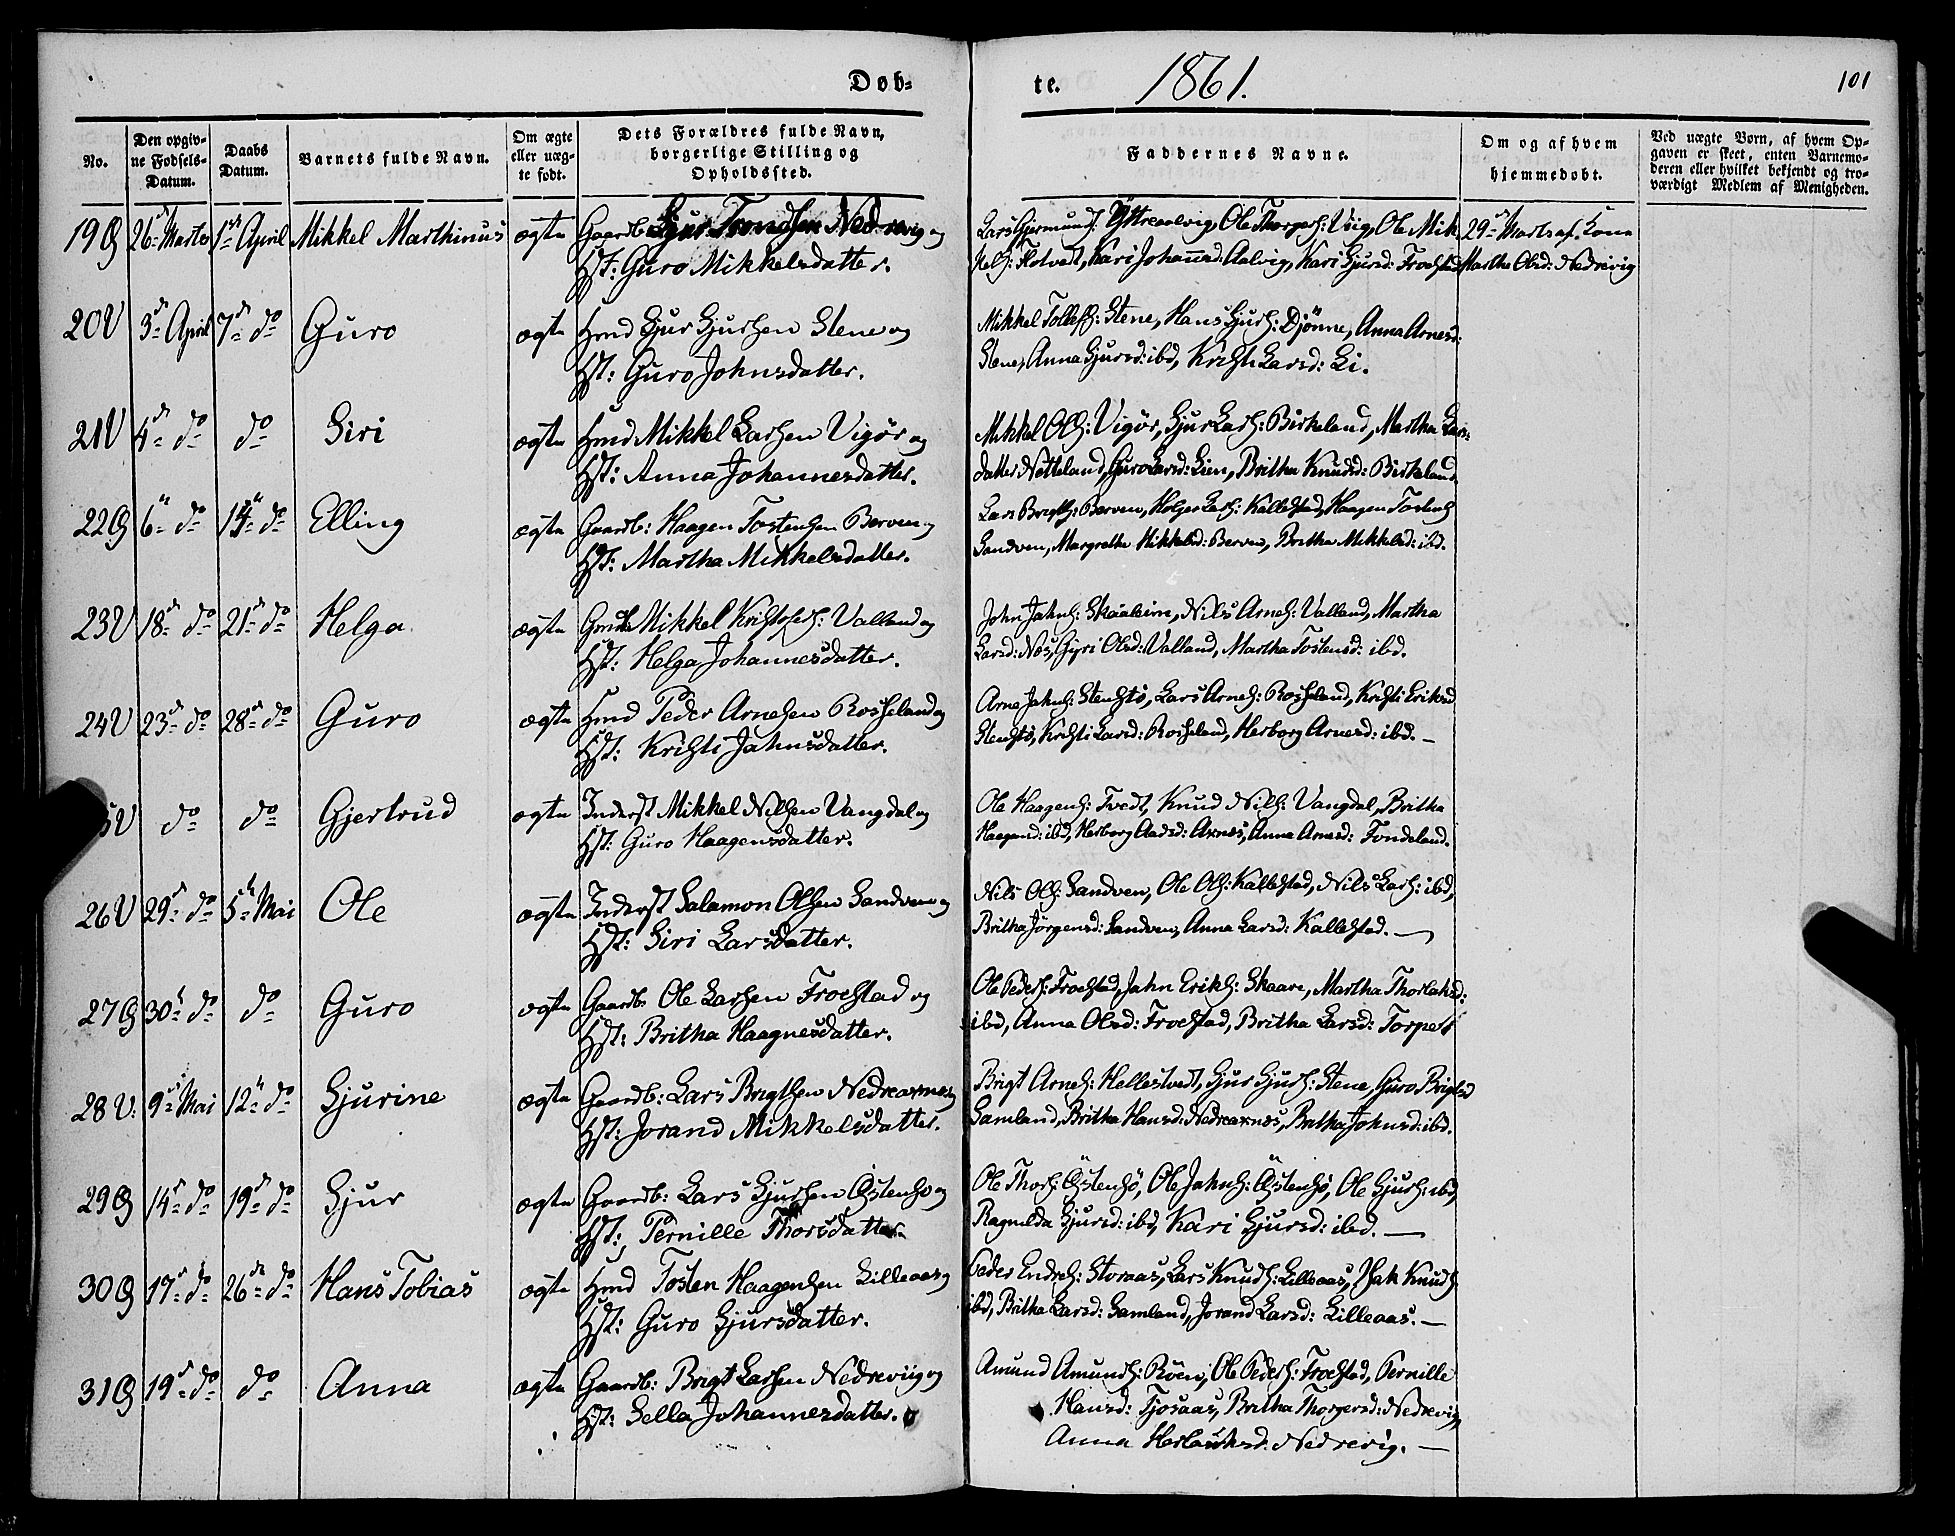 Døb-
te. 1861. 101
No. | Den opgiv-
ne Fødsels-
Datum. | Daabs
Datum. | Barnets fulde Navn. | Om ægte
eller uæg-
te født. | Dets Forældres fulde Navn,
borgerlige Stilling og
Opholdssted. | Faddernes Navne. | Om og af hvem
hjemmedøbt. | Ved uægte Børn, af hvem Op-
gaven er skeet, enten Barnemo-
deren eller hvilket bekjendt og tro-
værdigt Medlem af Menigheden.
19 G 26 Marts 1ste April Mikkel Marthinus ægte Gaardb: Sjur Trondsen Nedrevig og
Hst: Guro Mikkelsdatter.
Lars Gjermunds: Yttreaalvig, Ole Thorgers: Viig, Ole Mik
kels: Flotvedt, Kari Johannsd: Aalvig, Kari Sjursd: Froestad
29de Marts af Kone
Martha Olsd: Nedrevig
20 V 3de April 7de do Guro ægte Hmd Sjur Sjursen Stene og
Hst: Guro Johnsdatter.
Mikkel Tollefs: Stene, Hans Sjurs: Djønne, Anna Arnesd:
Stene, Anna Sjursd: ibd, Kristi Larsd: Li.
21 V 4de do do Siri ægte Hmd Mikkel Larsen Vigør og
Hst: Anna Johannesdatter.
Mikkel Ols: Vigør, Sjur Lars: Birkeland, Martha Lars
datter Netteland, Guro Larsd: Lien, Britha Knudsd: Birkeland
22 G 6te do 14te do Elling ægte Gaardb: Haagen Tostensen Berven og
Hst: Martha Mikkelsdatter.
Lars Brigths: Berven, Holger Lars: Kallestad, Haagen Tostens
Sandven, Margretha Mikkelsd: Berven, Britha Mikkelsd: ibd.
23 V 18de do 21de do Helga ægte Mikkel Kristofers: Valland og
Hst: Helga Johannesdatter.
John Jahns: Skaaleim, Nils Arnes: Valland, Martha
Larsd: Nes, Gyri Olsd: Valland, Martha Tostensd: ibd.
24 V 23de do 28de do Guro ægte Hmd Peder Arnesen Rosseland og
Hst: Kristi Jahnsdatter.
Arne Jahns: Stenstø, Lars Arnes: Rosseland, Kristi Eriksd
Stenstø, Kristi Larsd: Rosseland, Herborg Arnesd: ibd. —
5 V do do Gjertrud ægte Inderst Mikkel Nilsen Vangdal og
Hst: Guro Haagensdatter.
Ole Haagens: Tvedt, Knud Nils: Vangdal, Britha
Haagensd: ibd, Herborg Aadsd: Axnes, Anna Arnesd: Tondeland.
26 V 29de do 5te Mai Ole ægte Inderst Salamon Olsen Sandven og
Hst: Siri Larsdatter.
Nils Ols: Sandven, Ole Ols: Kallestad, Nils Lars: ibd,
Britha Jørgensd: Sandven, Anna Larsd: Kallestad. —
27 G 30te do do Guro ægte Gaardb Ole Larsen Froestad og
Hst: Britha Haagnesdatter.
Ole Peders: Froestad, Jahn Eriks: Skaare, Martha Thorlaksd:
ibd, Anna Olsd: Froestad, Britha Larsd: Torpett
28 V: 9de Mai 12te do Sjurine ægte Gaardb: Lars Brigthsen Nedreaxnes og
Hst: Jorand Mikkelsdatter.
Brigt Arnes: Hellestvedt, Sjur Sjurs: Stene, Guro Brigtsd
Samland, Britha Hansd: Nedreaxnes, Britha Johnsd: ibd.
29 G 14de do 19de do Sjur ægte Gaardb: Lars Sjursen Øystensø og
Hst: Pernille Thorsdatter.
Ole Thors: Øystensø, Ole Jahns: Øystensø, Ole Sjurs: ibd,
Ragnilda Sjursd: ibd, Kari Sjursd: ibd. —
30 G 17de do 26de do Hans Tobias ægte Hmd Tosten Haagensen Lilleaas og
Hst: Guro Sjursdatter.
Peder Endres: Storaas, Lars Knuds: Lilleaas, Isak Knuds
ibd, Britha Larsd: Samland, Jorand Larsd: Lilleaas. —
31 G 19de do do Anna ægte Gaardb: Brigt Larsen Nedreviig og
Hst: Sella Johannesdatter.
Amund Amunds: Røen, Ole Peders: Froestad, Pernille
Hansd: Tjosaas, Britha Thorgersd: Nedrevig,
Anna Herlauksd: Nedrevig. —